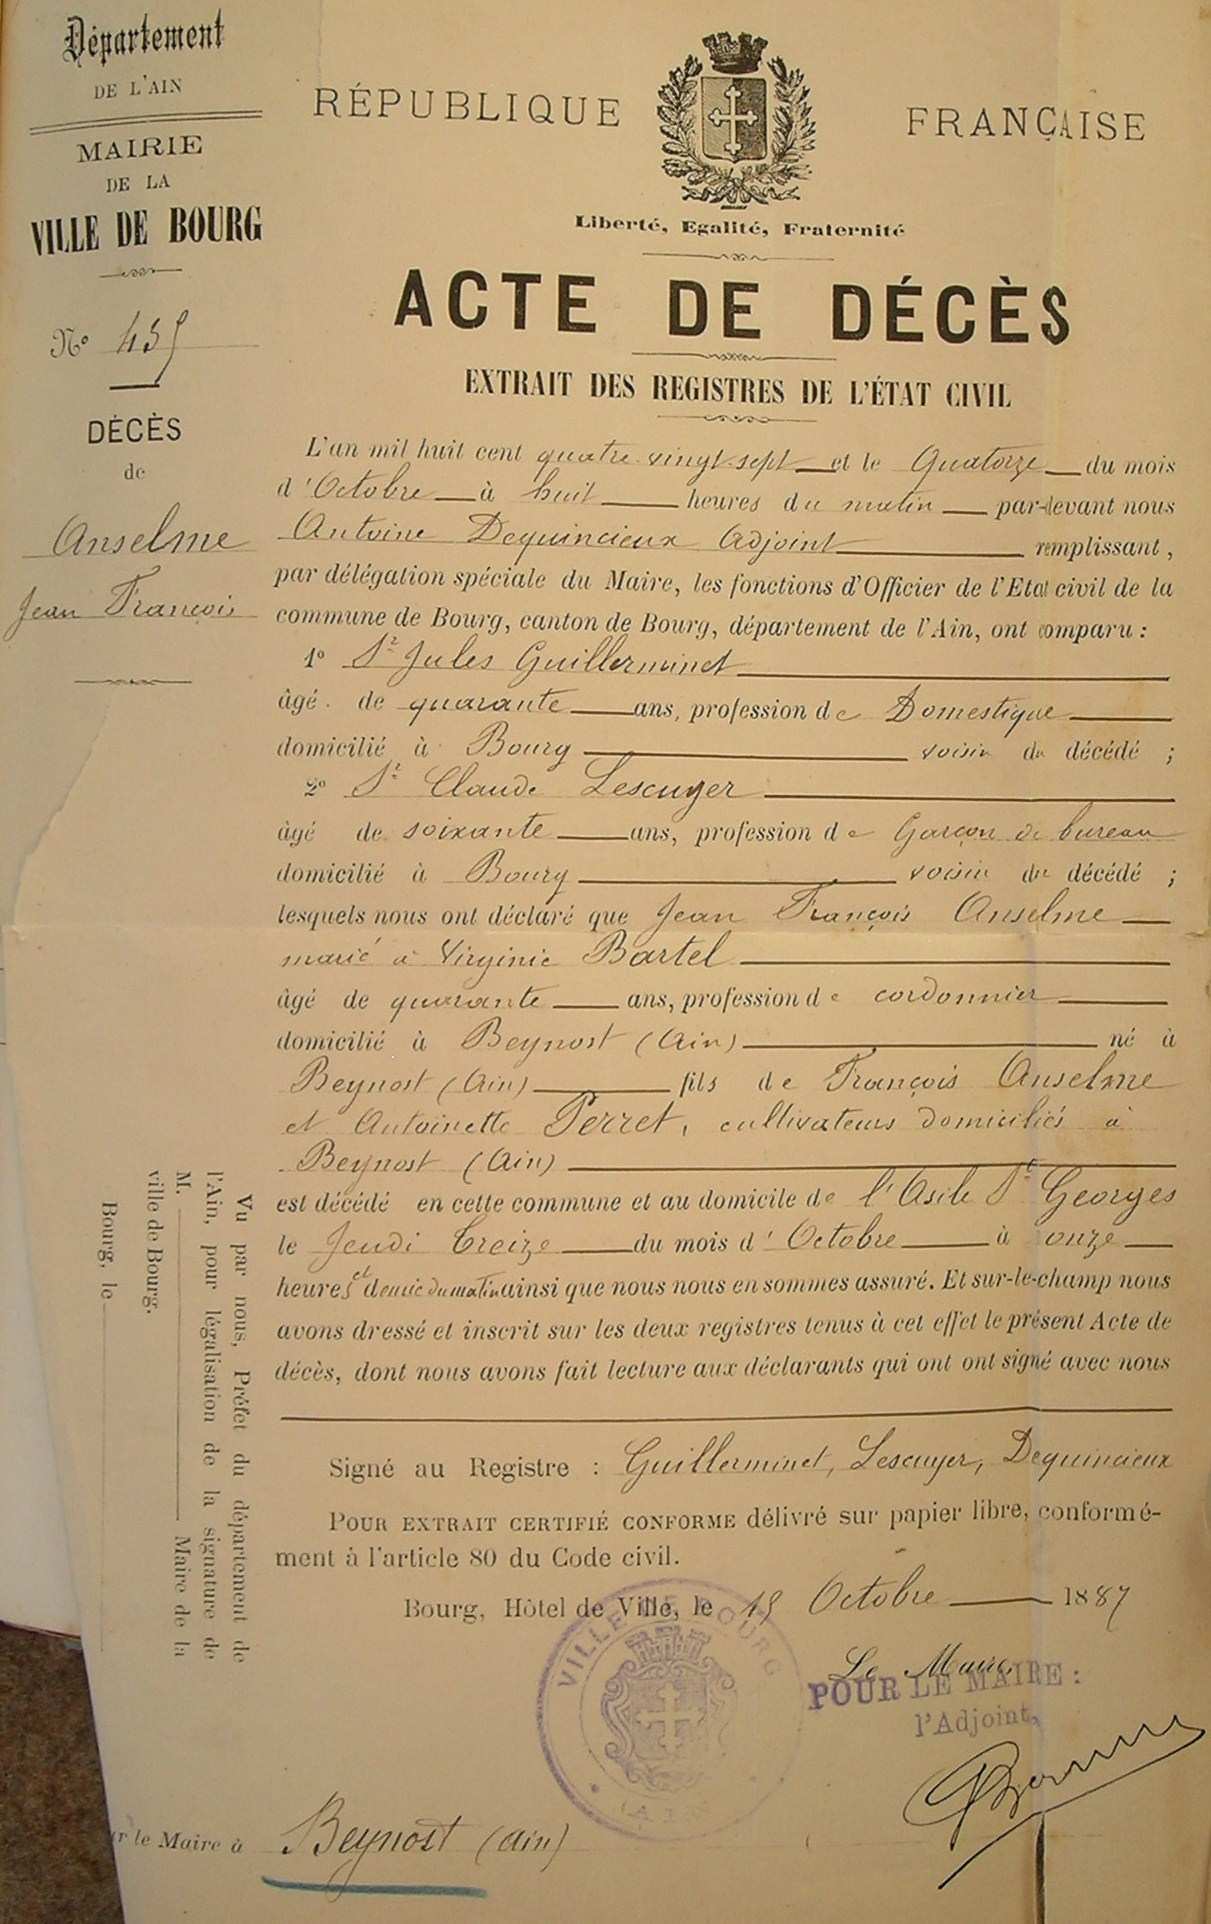 Département
DE L'AIN
MAIRIE
DE LA
VILLE DE BOURG
Nº 455
DÉCÈS
de
Anselme
Jean François
RÉPUBLIQUE FRANÇAISE
Liberté, Egalité, Fraternité
ACTE DE DÉCÈS
EXTRAIT DES REGISTRES DE L'ÉTAT CIVIL
L'an mil huit cent quatre vingt sept et le Quatorze du mois
d'Octobre à huit heures du matin par-devant nous
Antoine Dequincieux Adjoint remplissant,
par délégation spéciale du Maire, les fonctions d'Officier de l'Etat civil de la
commune de Bourg, canton de Bourg, département de l'Ain, ont comparu :
1º Sr Jules Guillerminet
âgé de quarante ans, profession de Domestique
domicilié à Bourg voisin du décédé ;
2º Sr Claude Lescuyer
âgé de soixante ans, profession de Garçon de bureau
domicilié à Bourg voisin du décédé ;
lesquels nous ont déclaré que Jean François Anselme
marié à Virginie Bartel
âgé de quarante ans, profession de cordonnier
domicilié à Beynost (Ain) né à
Beynost (Ain) fils de François Anselme
et Antoinette Perret, cultivateurs domiciliés à
Beynost (Ain)
est décédé en cette commune et au domicile de l'Asile St Georges
le Jeudi Treize du mois d'Octobre à onze
heures et demie du matin ainsi que nous nous en sommes assuré. Et sur-le-champ nous
avons dressé et inscrit sur les deux registres tenus à cet effet le présent Acte de
décès, dont nous avons fait lecture aux déclarants qui ont ont signé avec nous
Signé au Registre : Guillerminet, Lescuyer, Dequincieux
POUR EXTRAIT CERTIFIÉ CONFORME délivré sur papier libre, conformé-
ment à l'article 80 du Code civil.
Bourg, Hôtel de Ville, le 15 Octobre 1887
Le Maire
POUR LE MAIRE :
l'Adjoint,
VILLE DE BOURG
(AIN)
Vu par nous, Préfet du département de
l'Ain, pour légalisation de la signature de
M. Maire de la
ville de Bourg.
Bourg, le
le Maire à Beynost (Ain)